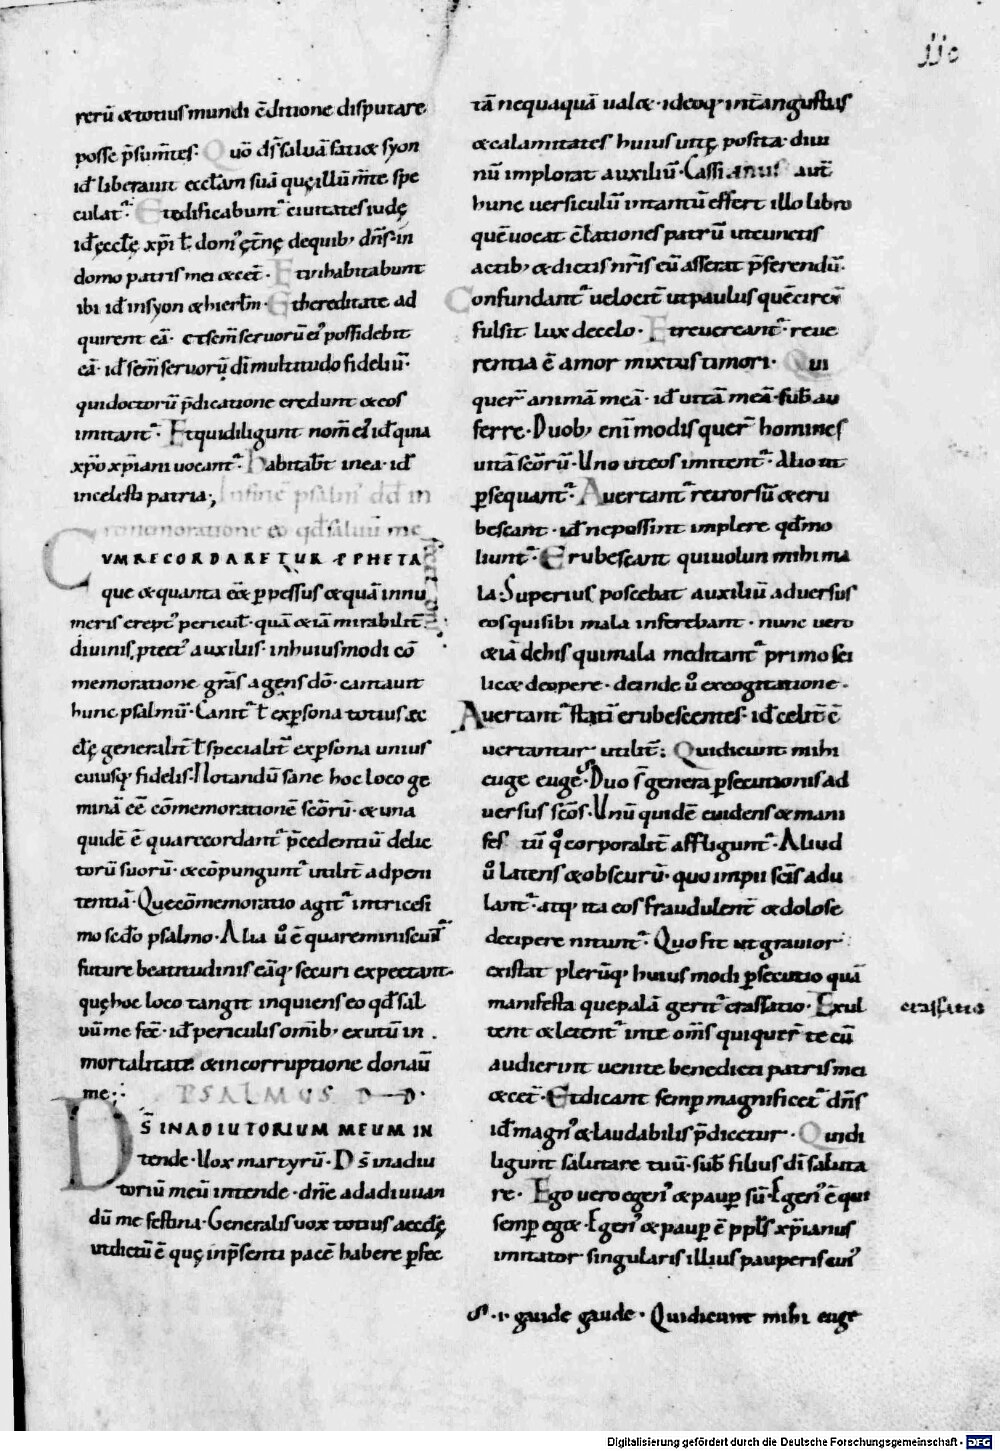 110
rerū &totius mundi c̄ditione disputare
posse p̄sum̄tes· Quō ds̄ saluā fati& syon
id ē liberauit eccłam suā quę illū m̄te spe
culat᷑· Et edificabunt᷑ ciuitates iudę
id ē ęcclę xp̄i ł dom᷒ ęt̄nę de quib; dn̄s· in
domo patris mei &cet᷑· Et inhabitabunt
ibi id ē in syon & hierłm· Et hereditate ad
quirent eā· et sem̄ seruorū ei᷒ possidebit
eā· id ē sem̄ seruorū dī multitudo fideliū·
qui doctorū p̄dicatione credunt & eos
imitant᷑· Et qui diligunt nom̄ ei᷒ id ē quia
xp̄o xp̄iani uocant᷑· habitabt̄ in ea· id ē
in celesti patria; In finē psalm᷒ dd in
rememoratione eo qd̄ saluū me
fecit dn̄s·
CUM RECORDARETUR PPHETA
que & quanta eēt ppessus & quā innu
meris erept᷒ pericul̄· quā & iā mirabilit᷑
diuinis ptect᷒ auxiliis· in huiusmodi cō
memoratione grās agens dō· cantauit
hunc psalmū· Canit᷑ ł ex psona totius ec
clę generalit᷑ ł specialit᷑ ex psona unius
cuiusq; fidelis· Notandū sane hoc loco ge
minā eē cōmemorationē scōrū· & una
quidē ē qua recordant᷑ p̄cedentiū delic
torū suorū· & cōpungunt᷑ utilit᷑ ad peni
tentiā· Que cōmemoratio agit᷑ in tricesi
mo secdo psalmo· Alia ū ē qua reminiscunt᷑
future beatitudinis eāq; securi expectant·
quę hoc loco tangit inquiens eo qd̄ sal
uū me fec᷑· id ē periculis om̄ib; exutū in
mortalitate & incorruptione donauit
me; PSALMUS DD·
DS̄ IN ADIUTORIUM MEUM IN
tende· Uox martyrū· Ds̄ in adiu
toriū meū intende· dn̄e ad adiuuan
dū me festina· Generalis uox totius aecclę
ut dictū ē quę in p̄senti pacē habere psec
tā nequaquā ual&· ideoq; int̄ angustias
& calamitates huius uitę posita· diui
nū implorat auxiliū· Cassianus aut̄
hunc uersiculū in tantū effert illo libro
quē uocat c̄lationes patrū ut cunctis
actib; & dictis nr̄is eū asserat p̄ferendū·
Confundant᷑ uelocit᷑ ut paulus quē circū
fulsit lux de celo· Et reuereant᷑· reue
rentia ē amor mixtus timori· Qui
quer̄ animā meā· id ē uitā meā· sub̄ au
ferre· Duob; eni modis quer̄ homines
uitā scōrū· Uno ut eos imitent᷑· Alio ut
psequant᷑· Auertant᷑ retrorsū & eru
bescant· id ē ne possint implere qd̄ mo
liunt᷑· Erubescant qui uolun mihi ma
la· Superius poscebat auxiliū aduersus
eos qui sibi mala inferebant· nunc uero
& iā de his qui mala meditant᷑ primo sci
lic& de opere· deinde ū excogitatione·
Auertant᷑ stati erubescentes· id ē celit᷑ c̄
uertantur utilit᷑; Qui dicunt mihi
euge euge· Duo s̄ genera psecutionis ad
uersus scōs· Unū quidē euidens & mani
fes tū q̊ corporalit᷑ affligunt᷑· Aliud
ū latens & obscurū· quo impii scīs adu
lant᷑· atq; ita eos fraudulent᷑ & dolose
decipere nitunt᷑· Quo fit ut grauior
existat plerūq; huius modi psecutio quā
manifesta que palā gerit᷑ crassatio· Exul
crassatio
tent & letent᷑ in te om̄s qui quer̄ te cū
audierint uenite benedicti patris mei
& cet᷑· Et dicant semp magnificet᷑ dn̄s
id ē magn᷒ & laudabilis p̄dicetur· Qui di
ligunt salutare tuū· sub̄ filius dī saluta
re· Ego uero egen᷒ & paup sū· Egen᷒ ē qui
semp eg&· Egen᷒ & paup ē ppl̄s xp̄ianus
imitator singularis illius pauperis cui᷒
·i· gaude gaude· Qui dicunt mihi euge
Digitalisierung gefördert durch die Deutsche Forschungsgemeinschaft - DFG